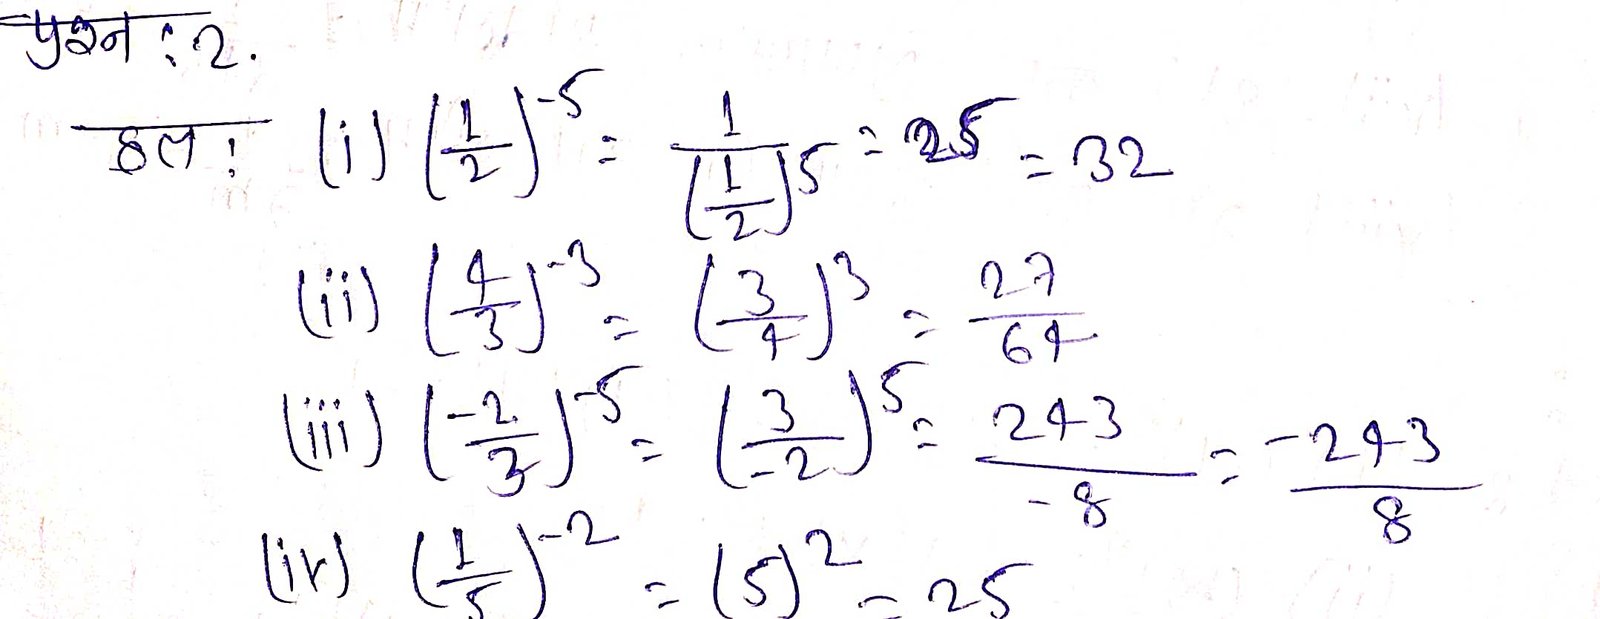 प्रश्न : 2.
हल : (i) (1/2)^-5 = 1/(1/2)^5 = 25 = 32
(ii) (4/3)^-3 = (3/4)^3 = 27/64
(iii) (-2/3)^-5 = (3/-2)^5 = 243/-8 = -243/8
(iv) (1/5)^-2 = (5)^2 = 25